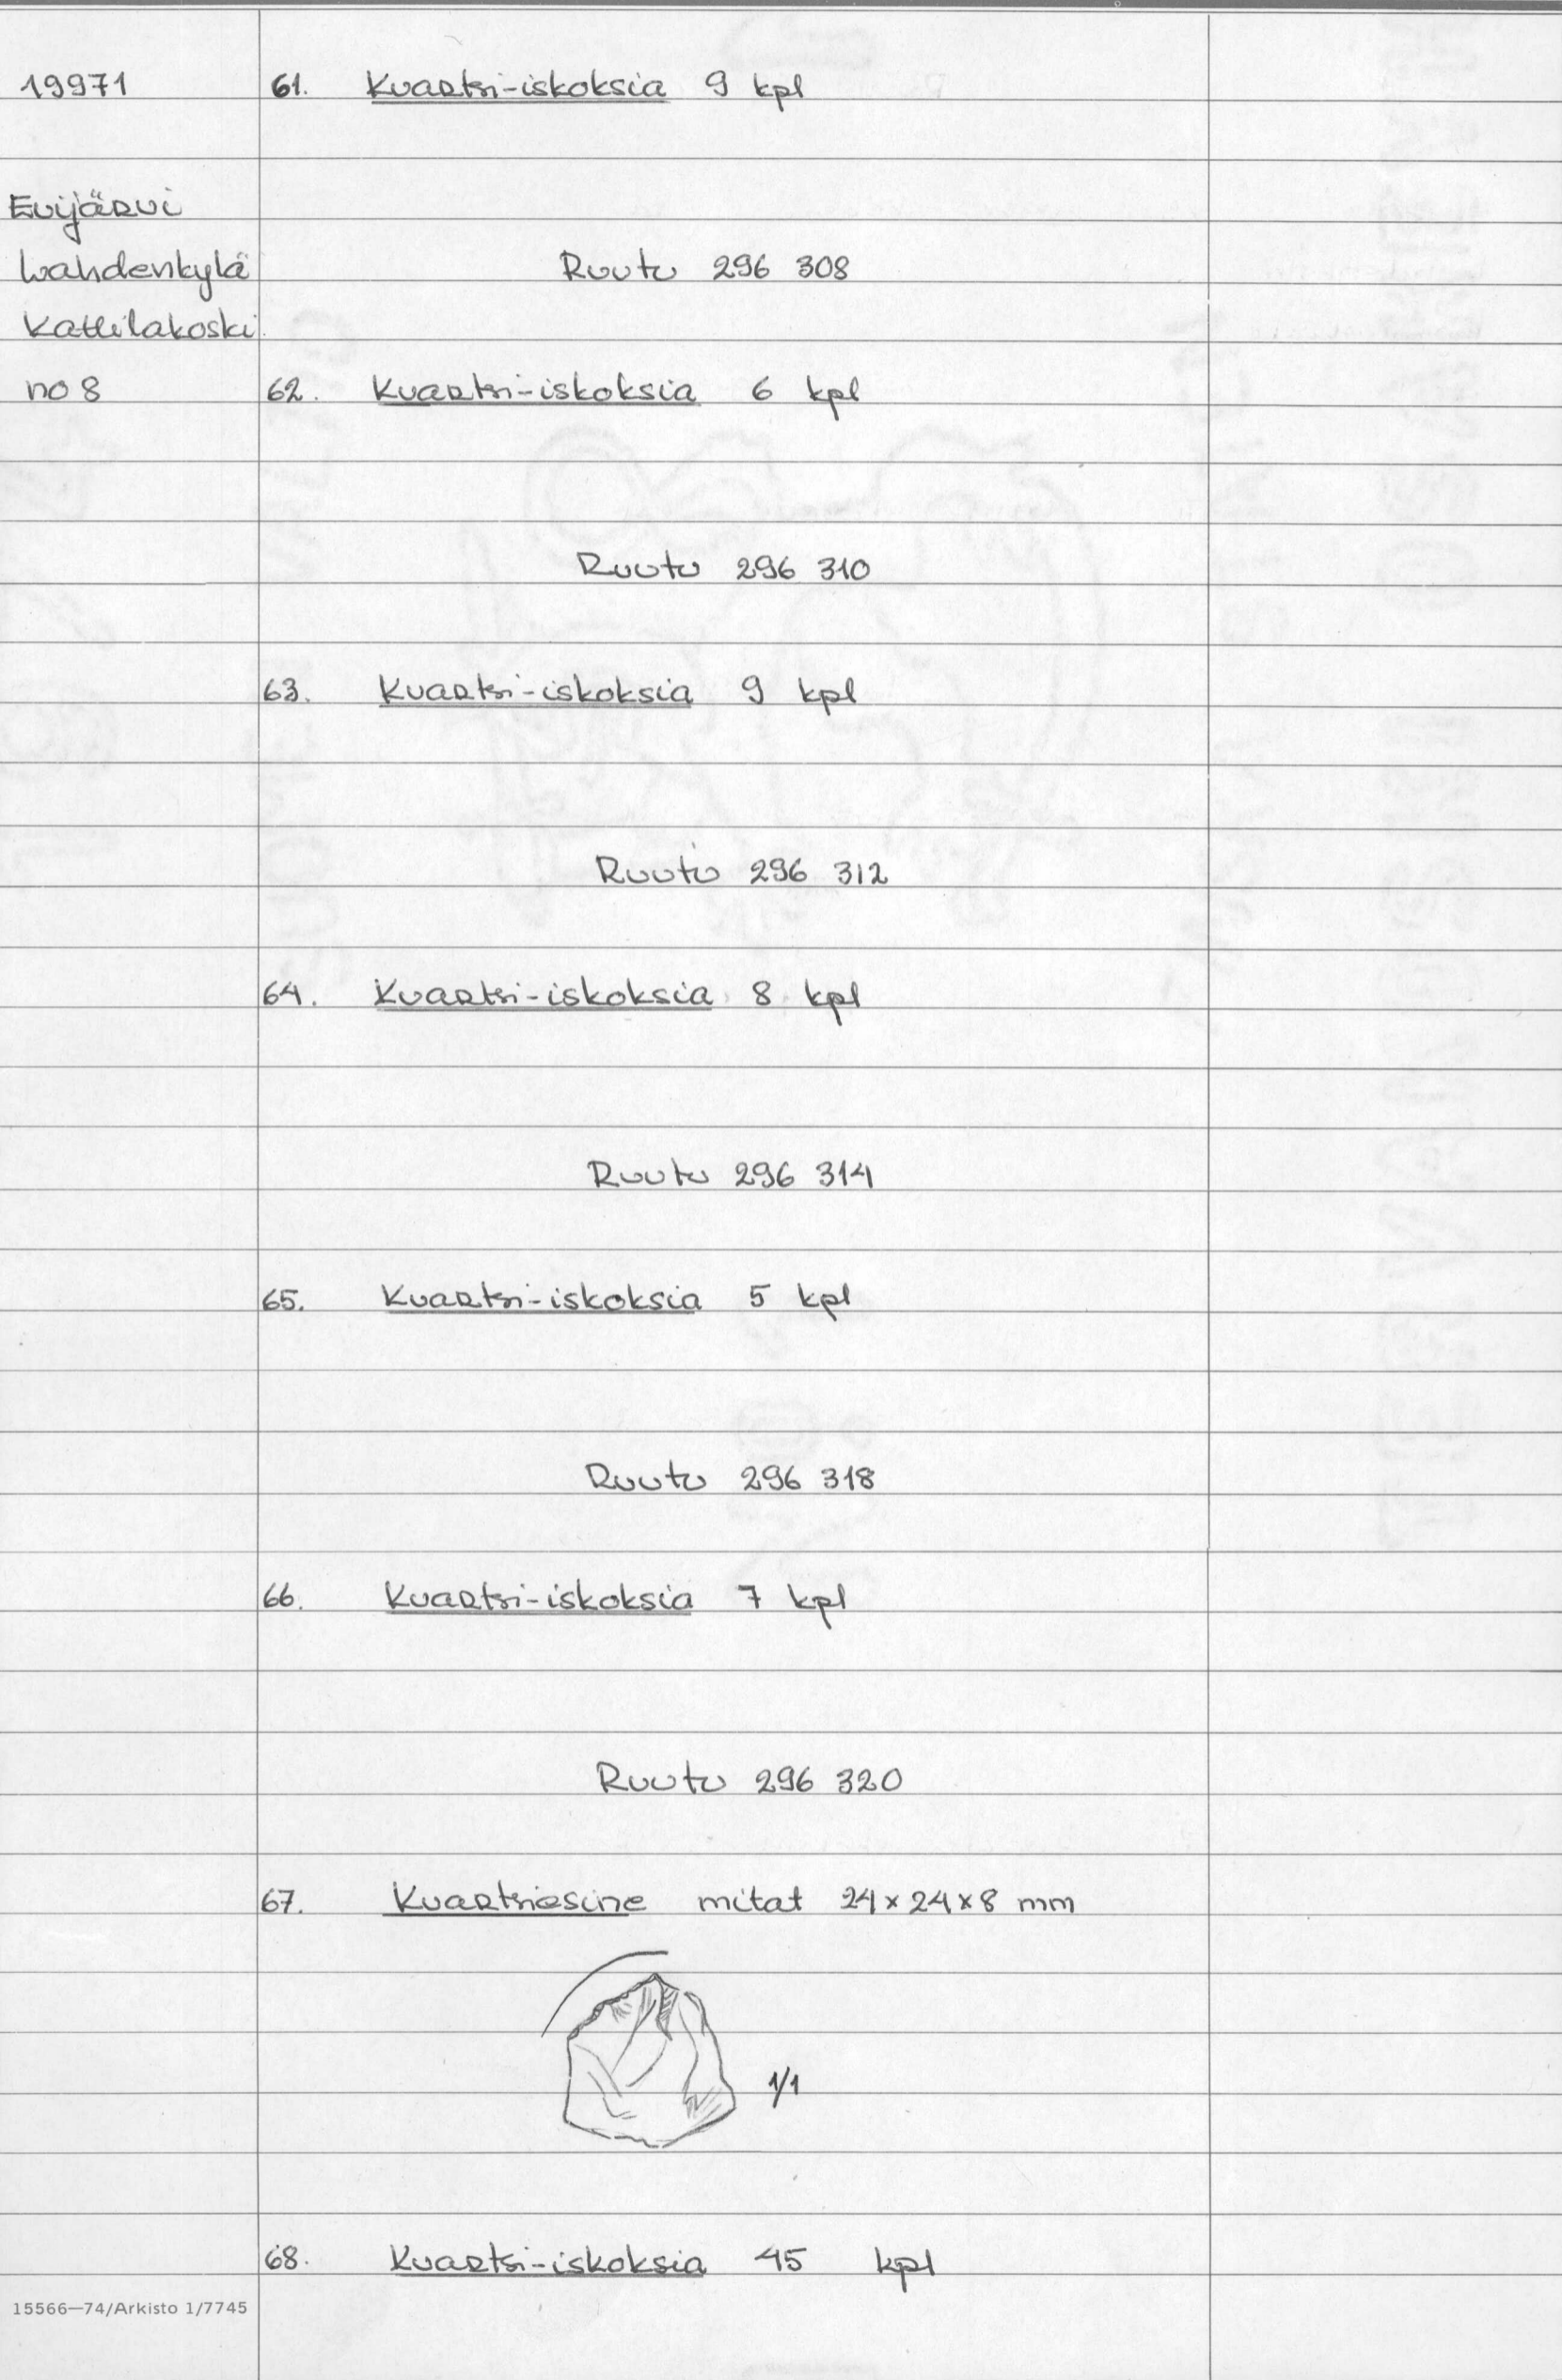 19971 61. Kvartsi-iskoksia 9 kpl
Evijärvi
Lahdenkylä Ruutu 296 308
Kattilakoski
no 8 62. Kvartsi-iskoksia 6 kpl
Ruutu 296 310
63. Kvartsi-iskoksia 9 kpl
Ruutu 296 312
64. Kvartsi-iskoksia 8 kpl
Ruutu 296 314
65. Kvartsi-iskoksia 5 kpl
Ruutu 296 318
66. Kvartsi-iskoksia 7 kpl
Ruutu 296 320
67. Kvartsiesine mitat 24 x 24 x 8 mm
1/1
68. Kvartsi-iskoksia 45 kpl
15566—74/Arkisto 1/7745